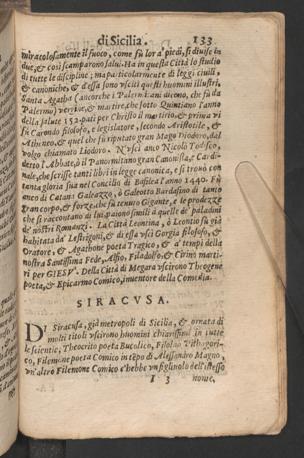 di Sicilia. 133
miracolosamente il fuoco, come fù lor a' piedi, si diuise in
due, & così scamparono salui. Ha in questa Città lo studio
di tutte le discipline; ma particolarmente di leggi ciuili,
& canoniche, & d'essa sono vsciti questi huomini illustri,
Santa Agatha (ancorche i Palermitani dicono, che fù da
Palermo) vergine, & martire, che sotto Quintiano l'anno
della salute 152. patì per Christo il martirio, & prima vi
fù Carondo filosofo, e legislatore, secondo Aristotile, &
Atheneo, & quel che fù riputato gran Mago Diodoro, dal
volgo chiamato Liodoro. N'vscì anco Nicolò Todisco,
detto l'Abbate, ò il Panormitano gran Canonista, & Cardi-
nale, che scrisse tanti libri in legge canonica, e si trouò con
tanta gloria sua nel Concilio di Basilea l'anno 1440. Fù
anco di Catania Galeazzo, ò Galeotto Bardasino di tanto
gran corpo, & forze, che fù tenuto Gigante, e le prodezze
che si raccontano di lui paiono simili à quelle de' paladini
de' nostri Romanzi. La Città Leontina, ò Leontio fù già
habitata da' Lestrigoni, & di essa vscì Gorgia filosofo, &
Oratore, & Agathone poeta Tragico, & a' tempi della
nostra Santissima Fede, Alfio, Filadolfo, & Cirino marti-
ri per GIESV'. Della Città di Megara vscirono Theogene
poeta, & Epicarmo Comico, inuentore della Comedia.
SIRACVSA.
DI Siracusa, già metropoli di Sicilia, & ornata di
molti titoli vscirono huomini chiarissimi in tutte
le scientie; Theocrito poeta Bucolico, Filolao Pithagori-
co, Filemone poeta Comico in tẽpo di Alessandro Magno,
vn'altro Filemone Comico c'hebbe vn figliuolo dell'istesso
I 3 nome,